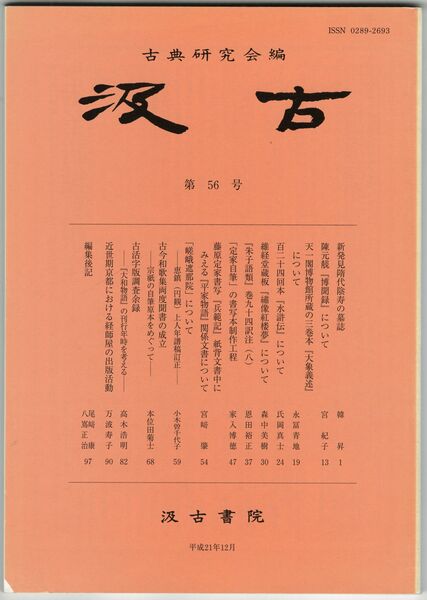 ISSN 0289-2693
古典研究会編
汲古
第 56 号
新発見隋代陰寿の墓誌 韓昇 1
陳元靚『博聞録』について 宮紀子 13
天一閣博物館所蔵の三巻本『大象義述』
について 永冨青地 19
百二十四回本『水滸伝』について 氏岡真士 24
維経堂蔵板『繡像紅楼夢』について 森中美樹 30
『朱子語類』巻九十四訳注(八) 恩田裕正 37
「定家自筆」の書写本制作工程 家入博徳 47
藤原定家書写『兵範記』紙背文書中に
みえる『平家物語』関係文書について 宮﨑肇 54
「嵯峨遮那院」について
――恵鎮(円観)上人年譜稿訂正―― 小木曽千代子 59
古今和歌集両度聞書の成立
――宗祇の自筆原本をめぐって―― 本位田菊士 68
古活字版調査余録
――『大和物語』の刊行年時を考える―― 高木浩明 82
近世期京都における経師屋の出版活動 万波寿子 90
編集後記 尾崎康
八嶌正治 97
汲古書院
平成21年12月